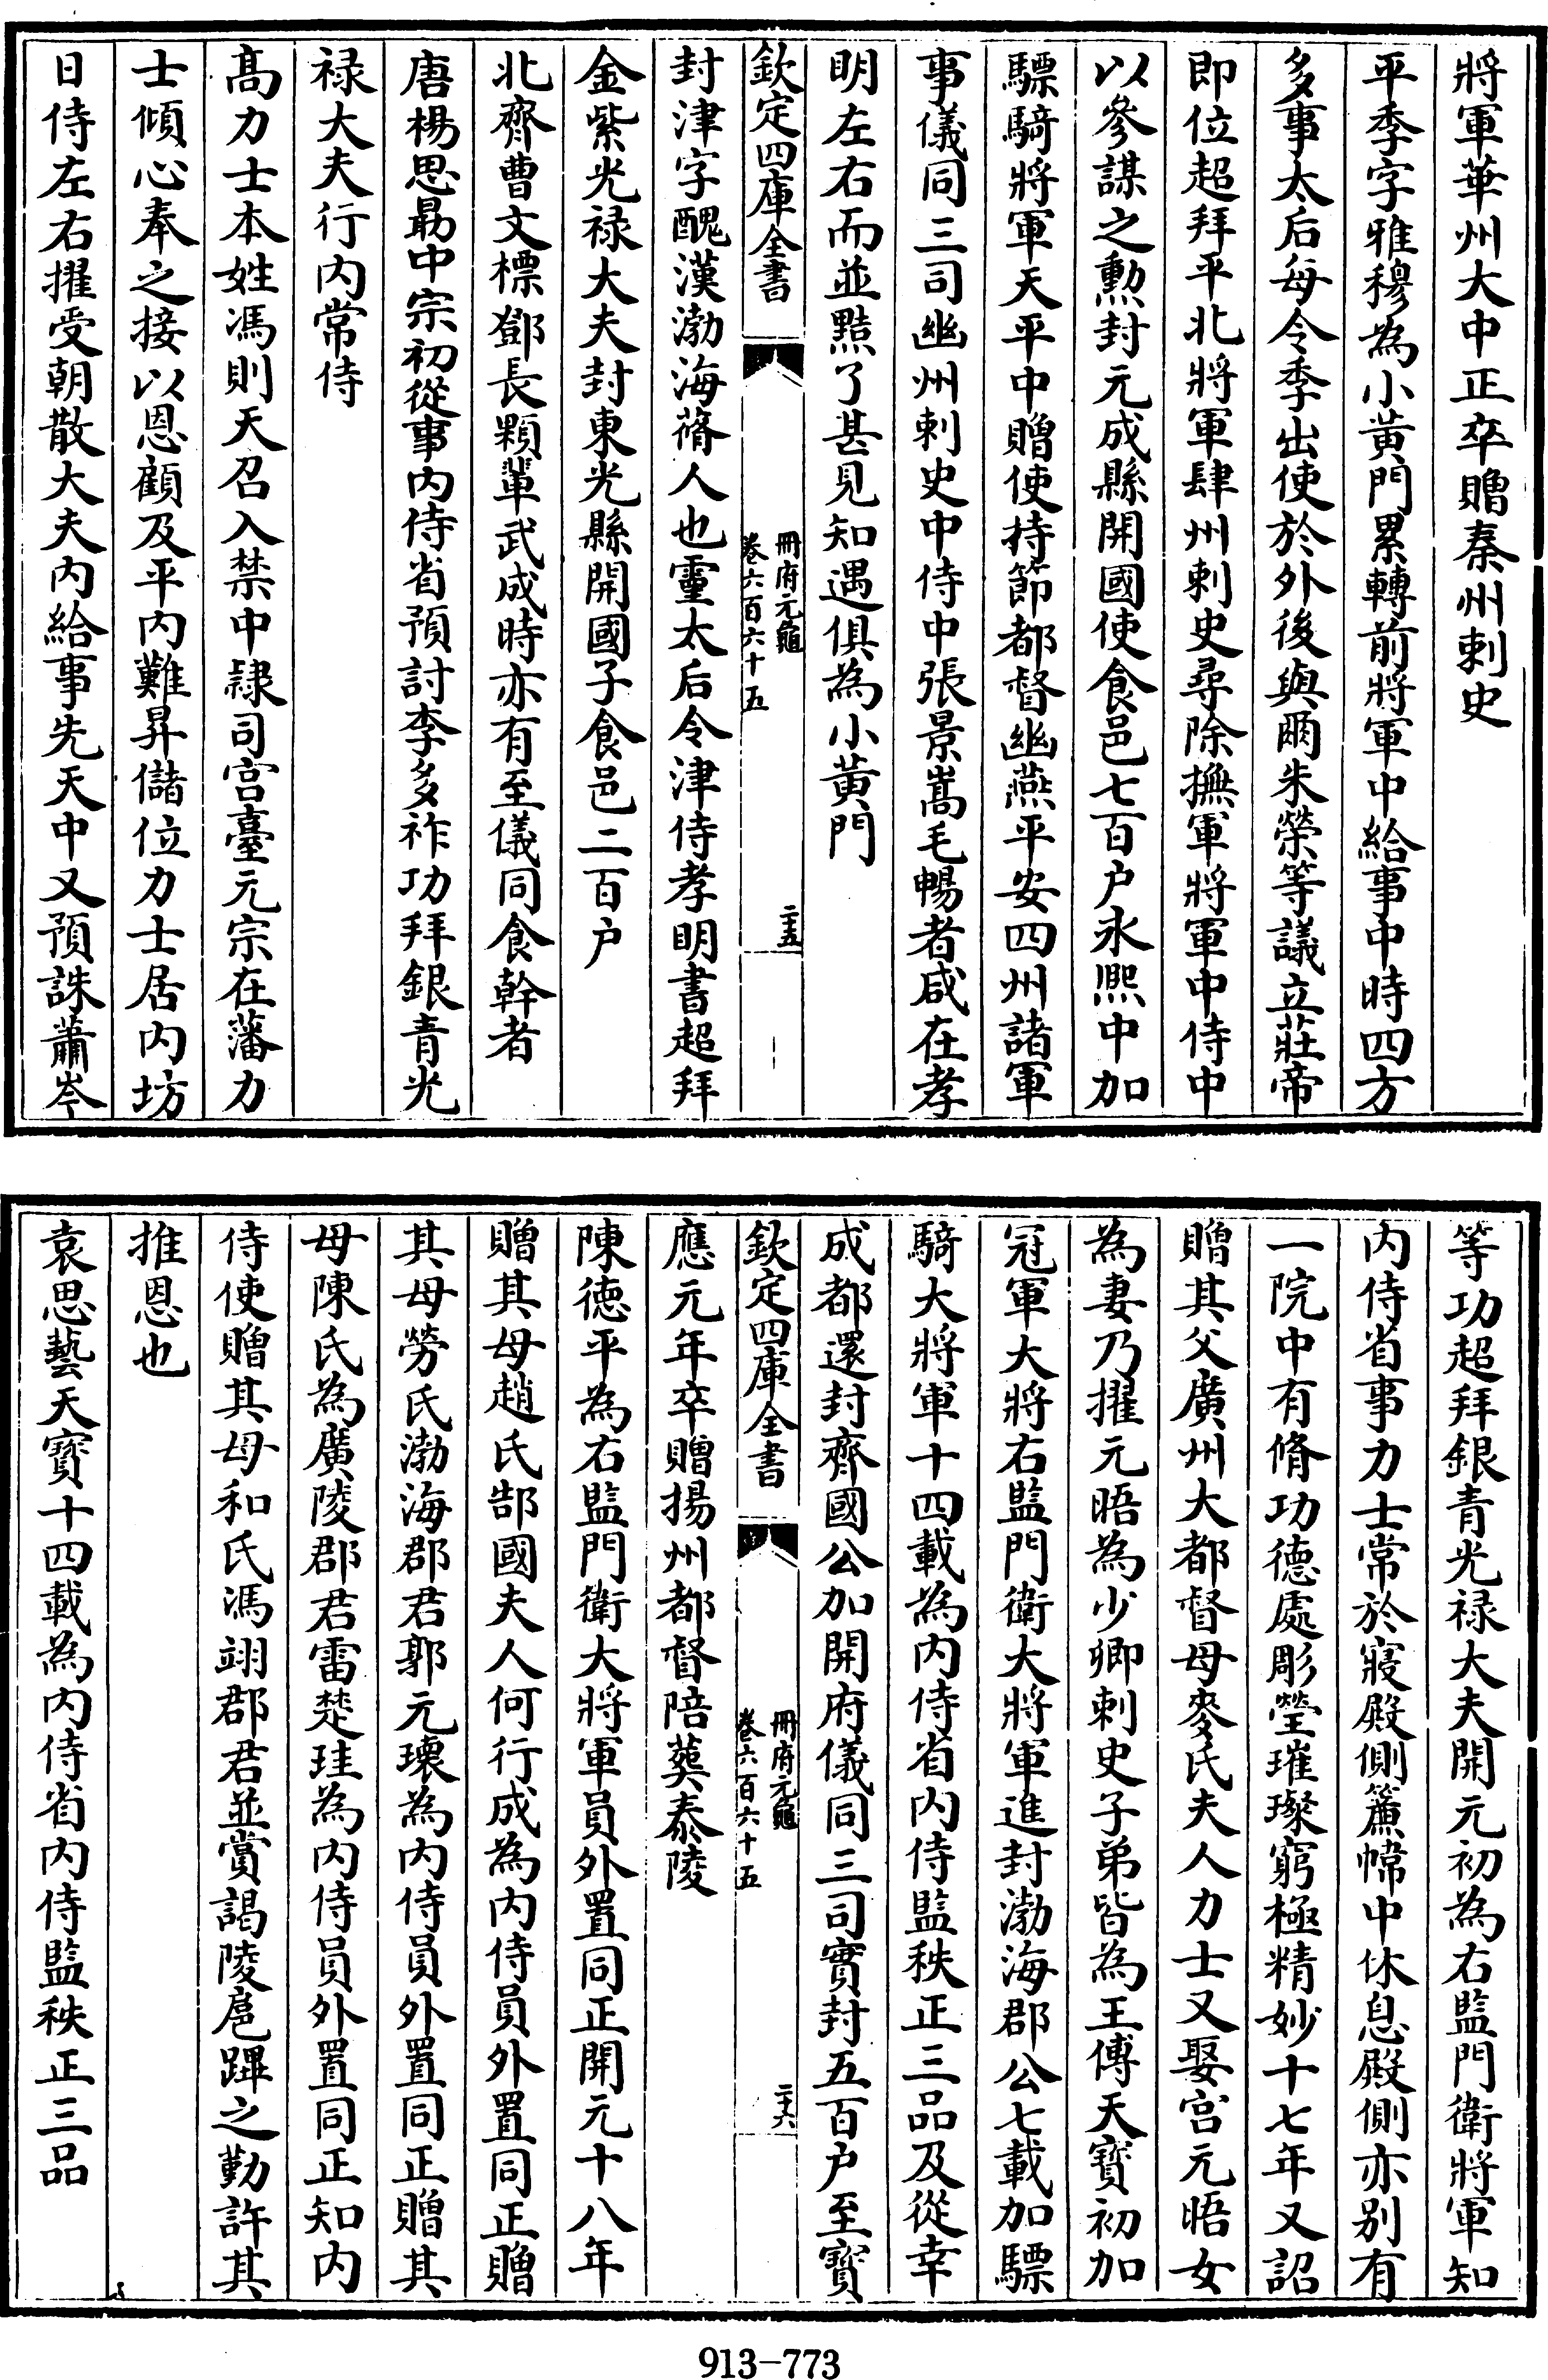 將軍華州大中正卒贈秦州刺史
平季字雅穆為小黄門累轉前將軍中給事中時四方
多事太后每令季出使於外後與爾朱榮等議立莊帝
即位超拜平北將軍肆州刺史尋除撫軍將軍中侍中
以參謀之勲封元成縣開國使食邑七百户永熈中加
驃騎將軍天平中贈使持節都督幽燕平安四州諸軍
事儀同三司幽州刺史中侍中張景嵩毛暢者咸在孝
明左右而並黠了甚見知遇俱為小黄門
欽定四庫全書
冊府元龜
卷六百六十五
二十五
封津字醜漢渤海蓨人也靈太后令津侍孝明書超拜
金紫光禄大夫封東光縣開國子食邑二百户
北齊曹文標鄧長顆輩武成時亦有至儀同食幹者
唐楊思勗中宗初從事内侍省預討李多祚功拜銀青光
禄大夫行内常侍
髙力士本姓馮則天召入禁中隷司宫臺元宗在藩力
士傾心奉之接以恩顧及平内難昇儲位力士居内坊
日侍左右擢受朝散大夫内給事先天中又預誅蕭岑
等功超拜銀青光禄大夫開元初為右監門衛將軍知
内侍省事力士常於寢殿側簾幃中休息殿側亦别有
一院中有脩功德處彫瑩璀璨窮極精妙十七年又詔
贈其父廣州大都督母麥氏夫人力士又娶宫元晤女
為妻乃擢元晤為少卿刺史子弟皆為王傅天寳初加
冠軍大將右監門衛大將軍進封渤海郡公七載加驃
騎大將軍十四載為内侍省内侍監秩正三品及從幸
成都還封齊國公加開府儀同三司實封五百户至寳
欽定四庫全書
冊府元龜
卷六百六十五
二十六
應元年卒贈揚州都督陪葬泰陵
陳德平為右監門衛大將軍員外置同正開元十八年
贈其母趙氏郜國夫人何行成為内侍員外置同正贈
其母勞氏渤海郡君郭元瓌為内侍員外置同正贈其
母陳氏為廣陵郡君雷楚珪為内侍員外置同正知内
侍使贈其母和氏馮翊郡君並賞謁陵扈蹕之勤許其
推恩也
袁思藝天寳十四載為内侍省内侍監秩正三品
913-773